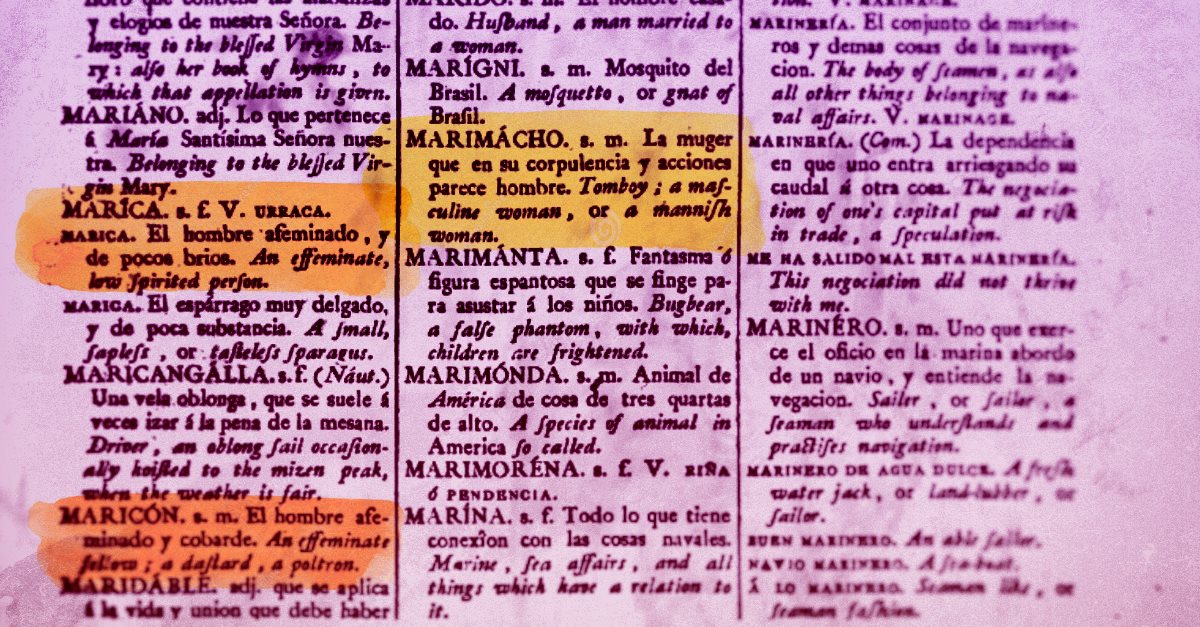 y elogios de nuestra Señora. Be-
longing to the bleſſed Virgin Ma-
ry: alſo her book of hymns, to
which that appellation is given.
MARIÁNO. adj. Lo que pertenece
á María Santísima Señora nues-
tra. Belonging to the bleſſed Vir-
gin Mary.
MARÍCA. s. f. V. URRACA.
MARICA. El hombre afeminado, y
de pocos brios. An effeminate,
low ſpirited perſon.
MARICA. El espárrago muy delgado,
y de poca substancia. A ſmall,
ſapleſs, or taſteleſs ſparagus.
MARICANGÁLLA. s. f. (Náut.)
Una vela oblonga, que se suele á
veces izar á la pena de la mesana.
Driver, an oblong ſail occaſion-
ally hoiſted to the mizen peak,
when the weather is fair.
MARICÓN. s. m. El hombre afe-
minado y cobarde. An effeminate
fellow; a daſtard, a poltron.
MARIDÁBLE. adj. que se aplica
á la vida y union que debe haber
do. Huſband, a man married to
a woman.
MARÍGNI. s. m. Mosquito del
Brasil. A moſquetto, or gnat of
Braſil.
MARIMÁCHO. s. m. La muger
que en su corpulencia y acciones
parece hombre. Tomboy; a maſ-
culine woman, or a manniſh
woman.
MARIMÁNTA. s. f. Fantasma ó
figura espantosa que se finge pa-
ra asustar á los niños. Bugbear,
a falſe phantom, with which,
children are frightened.
MARIMÓNDA. s. m. Animal de
América de cosa de tres quartas
de alto. A ſpecies of animal in
America ſo called.
MARIMORÉNA. s. f. V. RIÑA
ó PENDENCIA.
MARÍNA. s. f. Todo lo que tiene
conexîon con las cosas navales.
Marine, ſea affairs, and all
things which have a relation to
it.
MARINERÍA. El conjunto de marine-
ros y demas cosas de la navega-
cion. The body of ſeamen, as alſo
all other things belonging to na-
val affairs. V. MARINAGE.
MARINERÍA. (Com.) La dependencia
en que uno entra arriesgando su
caudal á otra cosa. The negocia-
tion of one's capital put at riſk
in trade, a ſpeculation.
ME HA SALIDO MAL ESTA MARINERÍA.
This negociation did not thrive
with me.
MARINÉRO. s. m. Uno que exer-
ce el oficio en la marina abordo
de un navio, y entiende la na-
vegacion. Sailer, or ſailor, a
ſeaman who underſtands and
practiſes navigation.
MARINERO DE AGUA DULCE. A freſh
water jack, or land-lubber, or
ſailor.
BUEN MARINERO. An able ſailor.
NAVIO MARINERO. A ſea-boat.
Á LO MARINERO. Seaman like, or
ſeaman faſhion.